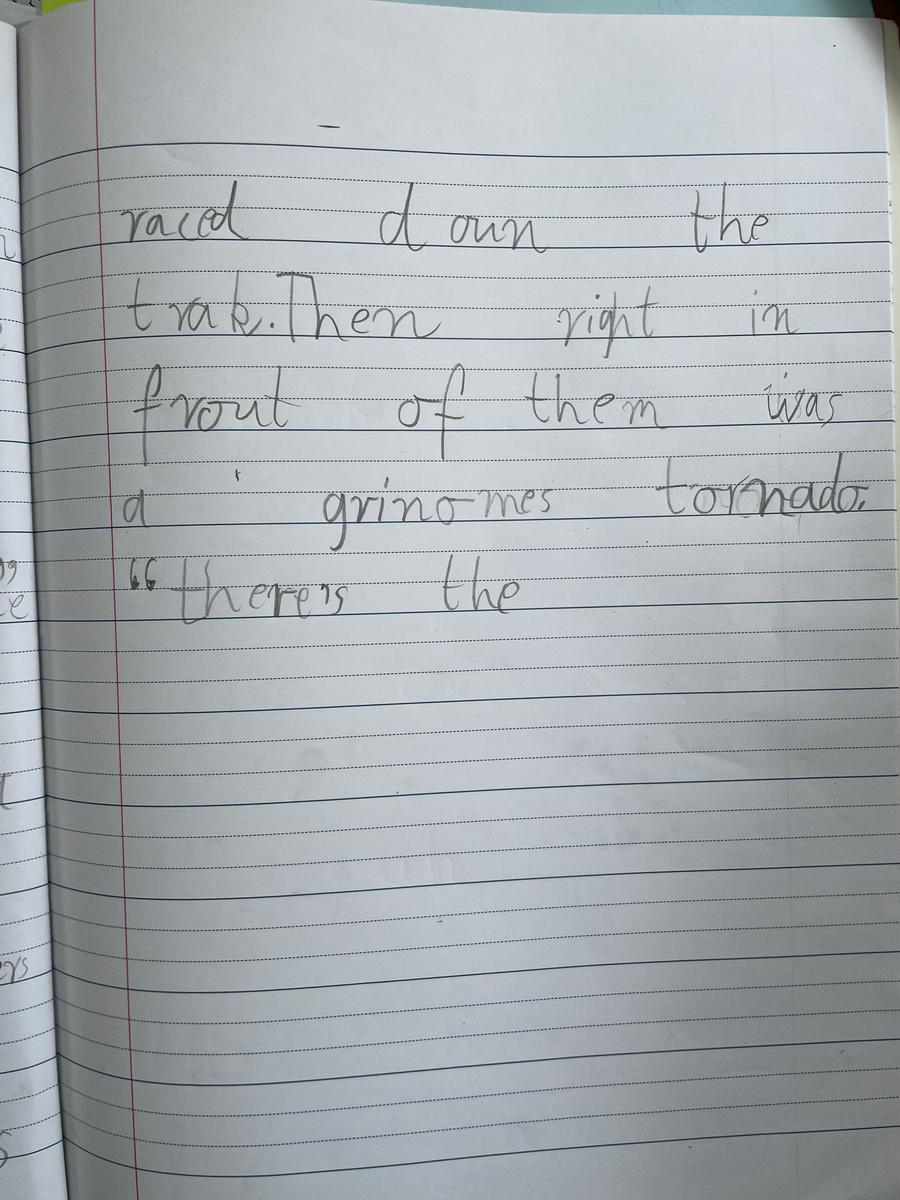 raced doun the
trak. Then right in
frout of them was
a grinomes tornado.
“there's the